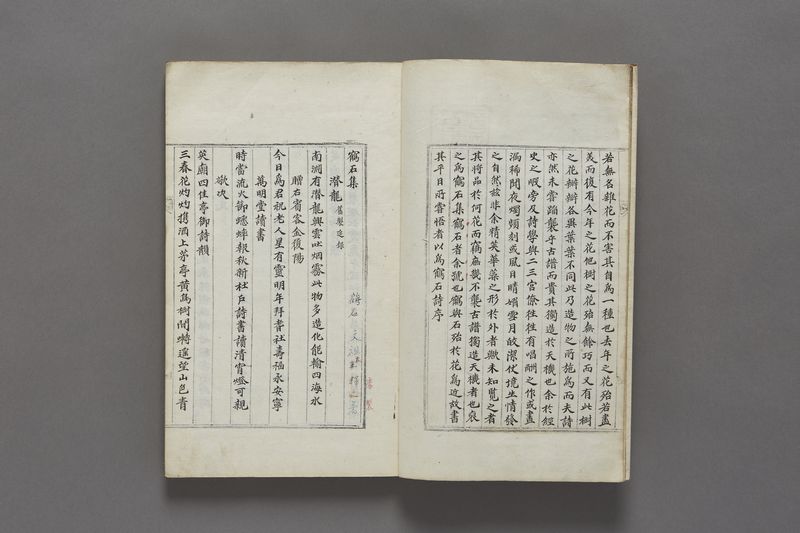 若無名雜花而不害其自爲一種也去年之花殆若盡
美而後有今年之花他樹之花殆無餘巧而又有此樹
之花瓣瓣各異葉葉不同此乃造物之所施爲而夫詩
亦然未嘗蹈襲乎古譜而貴其獨造於天機也余於經
史之暇旁及詩學與二三官僚往往有唱酬之作或畫
漏稀聞夜燭頻刻或風日晴娟雲月皎潔伏境生情發
之自然玆非余精英華藻之形於外者歟未知覽之者
其將品於何花而窃庶幾不襲古譜獨造天機者也裒
之爲鶴石集鶴石者余號也鶴與石殆於花爲近故書
其平日所嘗悟者以爲鶴石詩序
鶴石集
潛龍 舊製追錄
南淵有潛龍興雲吐烟霧此物多造化能輸四海水
贈石賓客金復陽
今日爲君祝老人星有靈明年拜耆社壽福永安寧
萬明堂讀書
時當流火御蟋蟀報秋新杜戶詩書讀清宵燈可親
敬次
英廟四佳亭御詩韻
三春花灼灼携酒上茅亭黃鳥樹間囀遙望山色靑
鶴石 文祖